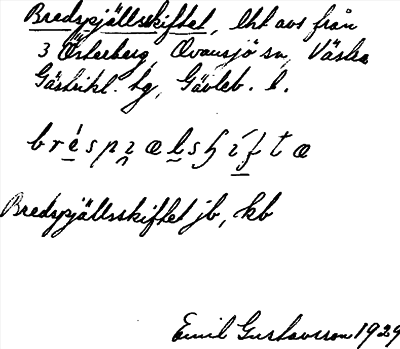 Bredspjällsskiftet, lht avs från
3 Österberg, Ovansjö sn, Västra
Gästrikl. tg, Gävleb. l.
Bredspjällsskiftet jb, kb
Emil Gustavsson 1929